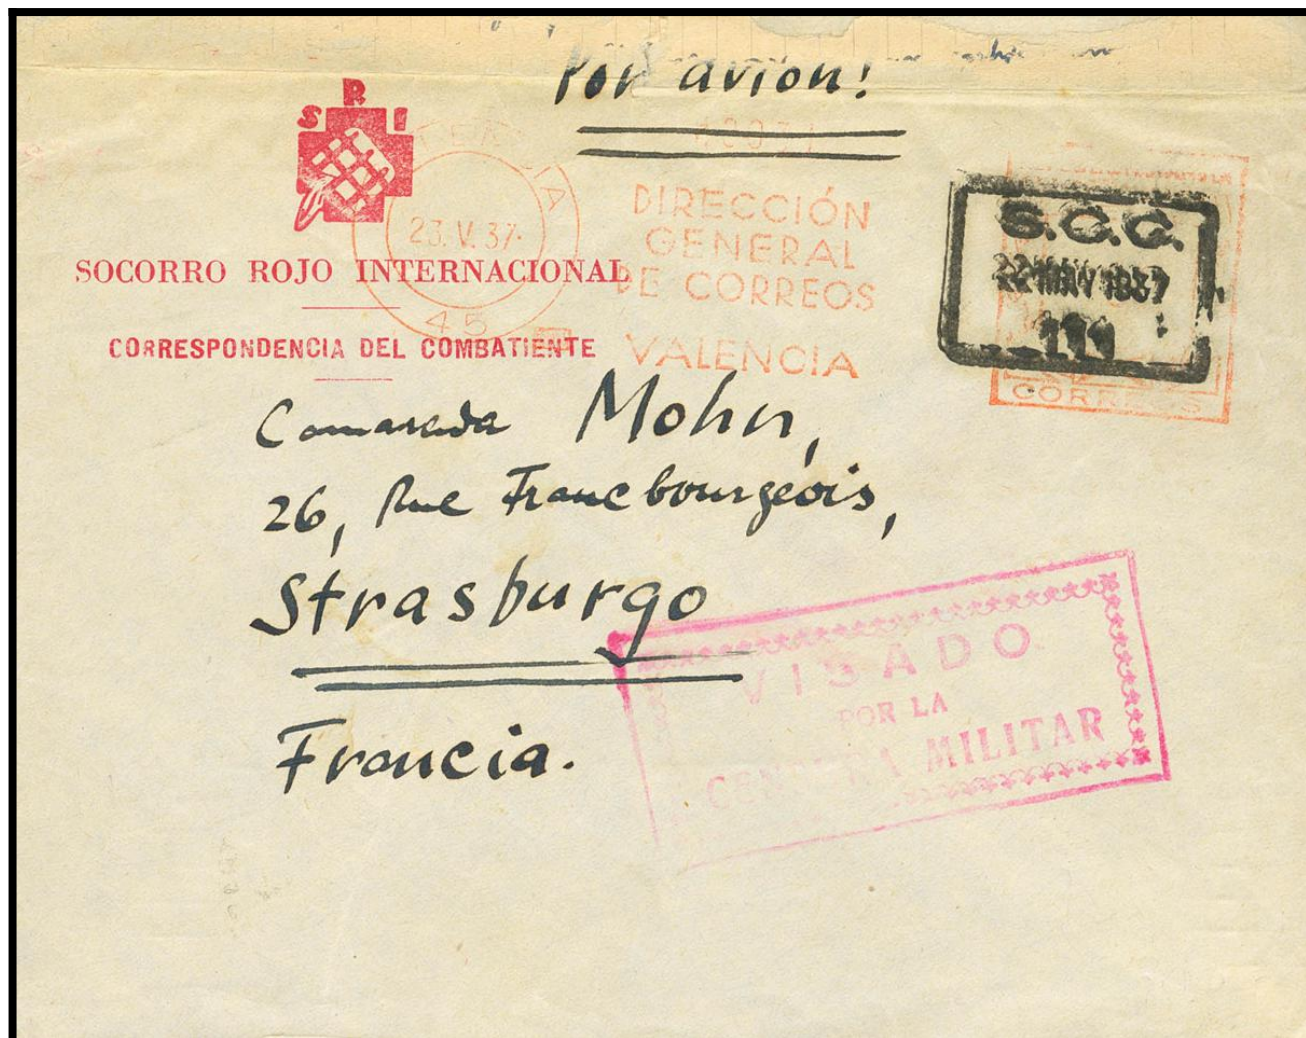 Por avion!
S.R.I
SOCORRO ROJO INTERNACIONAL
CORRESPONDENCIA DEL COMBATIENTE
23.V.37.
45
DIRECCIÓN
GENERAL
DE CORREOS
VALENCIA
S.C.C.
22 MAY 1937
CORREOS
Camarada Mohn,
26, Rue Francbourgeois,
Strasburgo
Francia.
VISADO
POR LA
CENSURA MILITAR